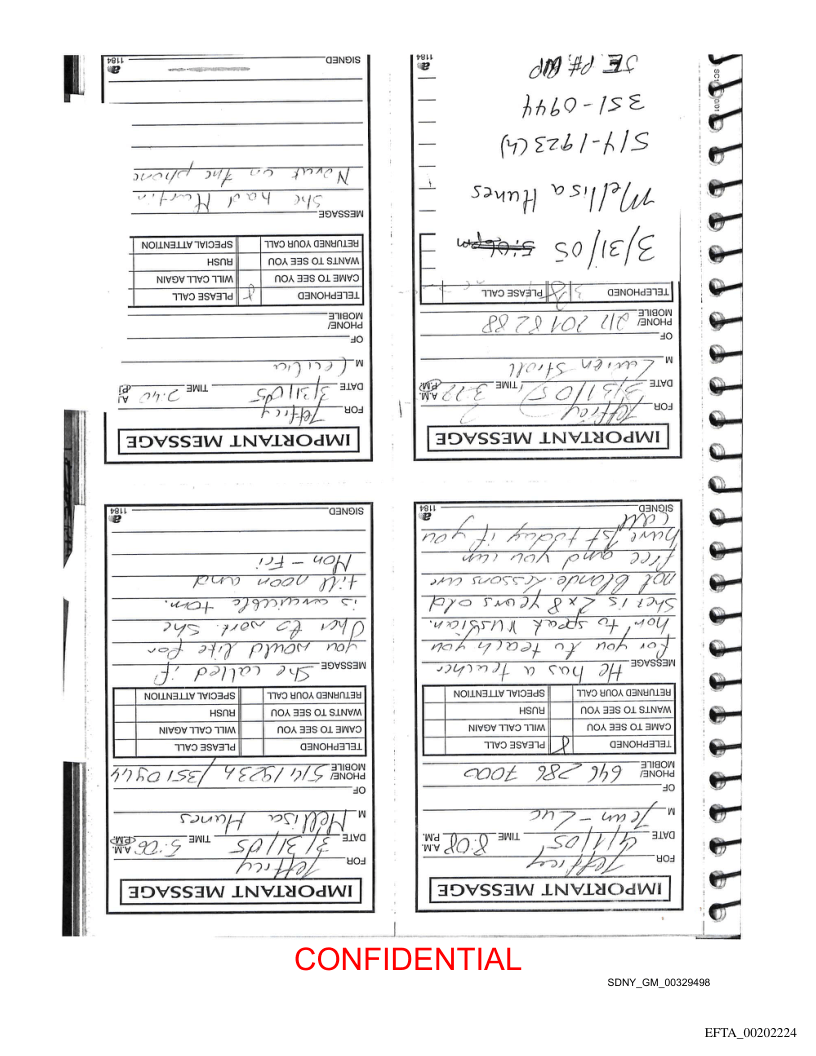 IMPORTANT MESSAGE
FOR Jeffrey
DATE 4/1/05 TIME 8:08 A.M. P.M.
M Jean-Luc
OF
PHONE/
MOBILE 646 286 7000
TELEPHONED PLEASE CALL
CAME TO SEE YOU WILL CALL AGAIN
WANTS TO SEE YOU RUSH
RETURNED YOUR CALL SPECIAL ATTENTION
MESSAGE He has a teacher
for you to teach you
how to speak russian.
She is 2x8 years old
not blonde. Lessons are
free and you can
have 1st today if you
call
SIGNED
1184
IMPORTANT MESSAGE
FOR Jeffrey
DATE 3/31/05 TIME 5:00 A.M. P.M.
M Mellisa Hanes
OF
PHONE/
MOBILE 514 1923h / 351 0944
TELEPHONED PLEASE CALL
CAME TO SEE YOU WILL CALL AGAIN
WANTS TO SEE YOU RUSH
RETURNED YOUR CALL SPECIAL ATTENTION
MESSAGE She called if
you would like for
her to work. She
is available tom.
till noon and
Mon - Fri
SIGNED
1184
IMPORTANT MESSAGE
FOR Jeffrey
DATE 3/31/05 TIME 3:22 A.M. P.M.
M
OF
PHONE/
MOBILE 212 201 8288
TELEPHONED PLEASE CALL
3/31/05
Mellisa Hanes
514-1923(h)
351-0944
JE P#
1184
IMPORTANT MESSAGE
FOR Jeffrey
DATE 3/31/05 TIME 2:40
M Cecilia
OF
PHONE/
MOBILE
TELEPHONED PLEASE CALL
CAME TO SEE YOU WILL CALL AGAIN
WANTS TO SEE YOU RUSH
RETURNED YOUR CALL SPECIAL ATTENTION
MESSAGE
She had Martin
Novat on the phone
SIGNED
1184
CONFIDENTIAL
SDNY_GM_00329498
EFTA_00202224